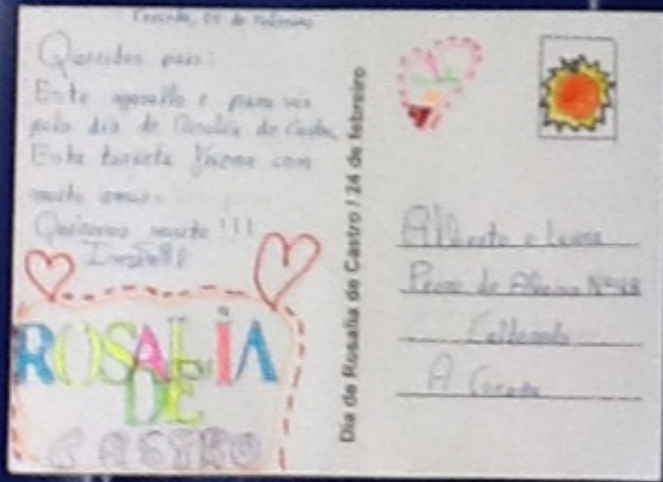 Queridos pais:
Este agasallo é para vós
polo día de Rosalía de Castro,
Esta tarxeta fíxena con
moito amor
Quérovos moito!!!
ROSALÍA
DE
CASTRO
Día de Rosalía de Castro / 24 de febreiro
Alberto e Laura
Nº48
A Coruña